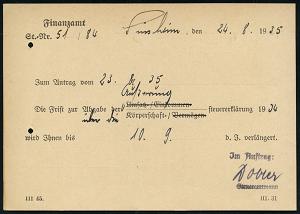 Finanzamt
St.-Nr. 51/84 Sinsheim, den 24. 8. 1935
Zum Antrag vom 23. 8. 35
Die Frist zur Abgabe der Umsatz-/Einkommen- steuererklärung 1934
über die Körperschaft-/Vermögen-
wird Ihnen bis 10. 9. d. J. verlängert.
Im Auftrag:
III 45. III. 31